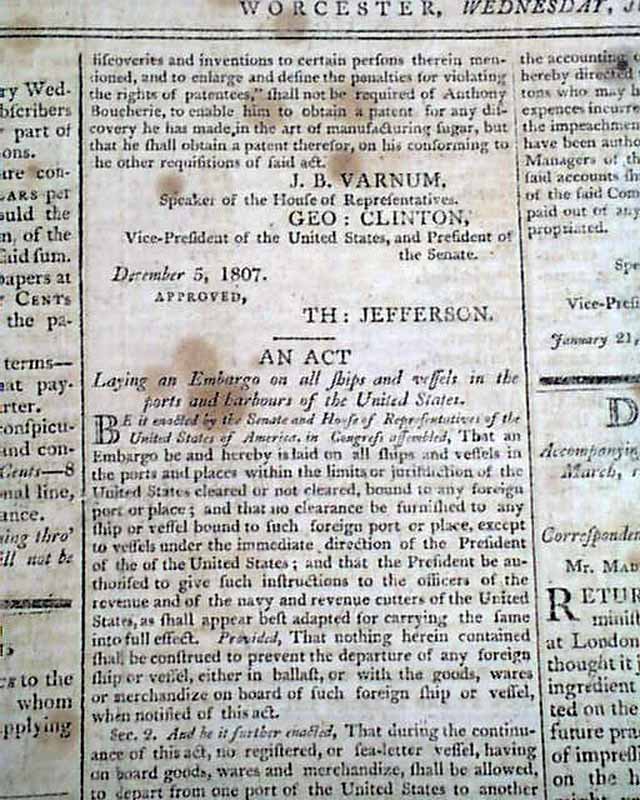 WORCESTER, WEDNESDAY,
ry Wed-
bſcribers
part of
ons.
ure con-
LARS per
ould the
n, of the
ſaid ſum.
papers at
CENTS
the pa-
terms—
at pay-
rter.
conſpicu-
and con-
Cents—8
onal line,
ance.
ing thro'
ill not be
to the
whom
pplying
diſcoveries and inventions to certain perſons therein men-
tioned, and to enlarge and define the penalties for violating
the rights of patentees," ſhall not be required of Anthony
Boucherie, to enable him to obtain a patent for any diſ-
covery he has made, in the art of manufacturing ſugar, but
that he ſhall obtain a patent therefor, on his conforming to
he other requiſitions of ſaid act.
J. B. VARNUM,
Speaker of the Houſe of Repreſentatives.
GEO: CLINTON,
Vice-Preſident of the United States, and Preſident of
the Senate.
December 5, 1807.
APPROVED,
TH: JEFFERSON.
AN ACT
Laying an Embargo on all ſhips and veſſels in the
ports and harbours of the United States.
BE it enacted by the Senate and Houſe of Repreſentatives of the
United States of America, in Congreſs aſſembled, That an
Embargo be and hereby is laid on all ſhips and veſſels in
the ports and places within the limits or juriſdiction of the
United States cleared or not cleared, bound to any foreign
port or place; and that no clearance be furniſhed to any
ſhip or veſſel bound to ſuch foreign port or place, except
to veſſels under the immediate direction of the Preſident
of the of the United States; and that the Preſident be au-
thoriſed to give ſuch inſtructions to the officers of the
revenue and of the navy and revenue cutters of the United
States, as ſhall appear beſt adapted for carrying the ſame
into full effect. Provided, That nothing herein contained
ſhall be conſtrued to prevent the departure of any foreign
ſhip or veſſel, either in ballaſt, or with the goods, wares
or merchandize on board of ſuch foreign ſhip or veſſel,
when notified of this act.
Sec. 2. And be it further enacted, That during the continu-
ance of this act, no regiſtered, or ſea-letter veſſel, having
on board goods, wares and merchandize, ſhall be allowed,
to depart from one port of the United States to another
the accounting
hereby directed
tons who may h
expences incurre
the impeachment
have been autho
Managers of th
ſaid accounts ſh
of the ſaid Com
paid out of any
propriated.
Spe
Vice-Preſi
January 21,
D
Accompanying
March,
Correſponden
Mr. MAD
RETUR
miniſt
at London
thought it
ingredient
ted on the
future pra
of impreſſ
on the h